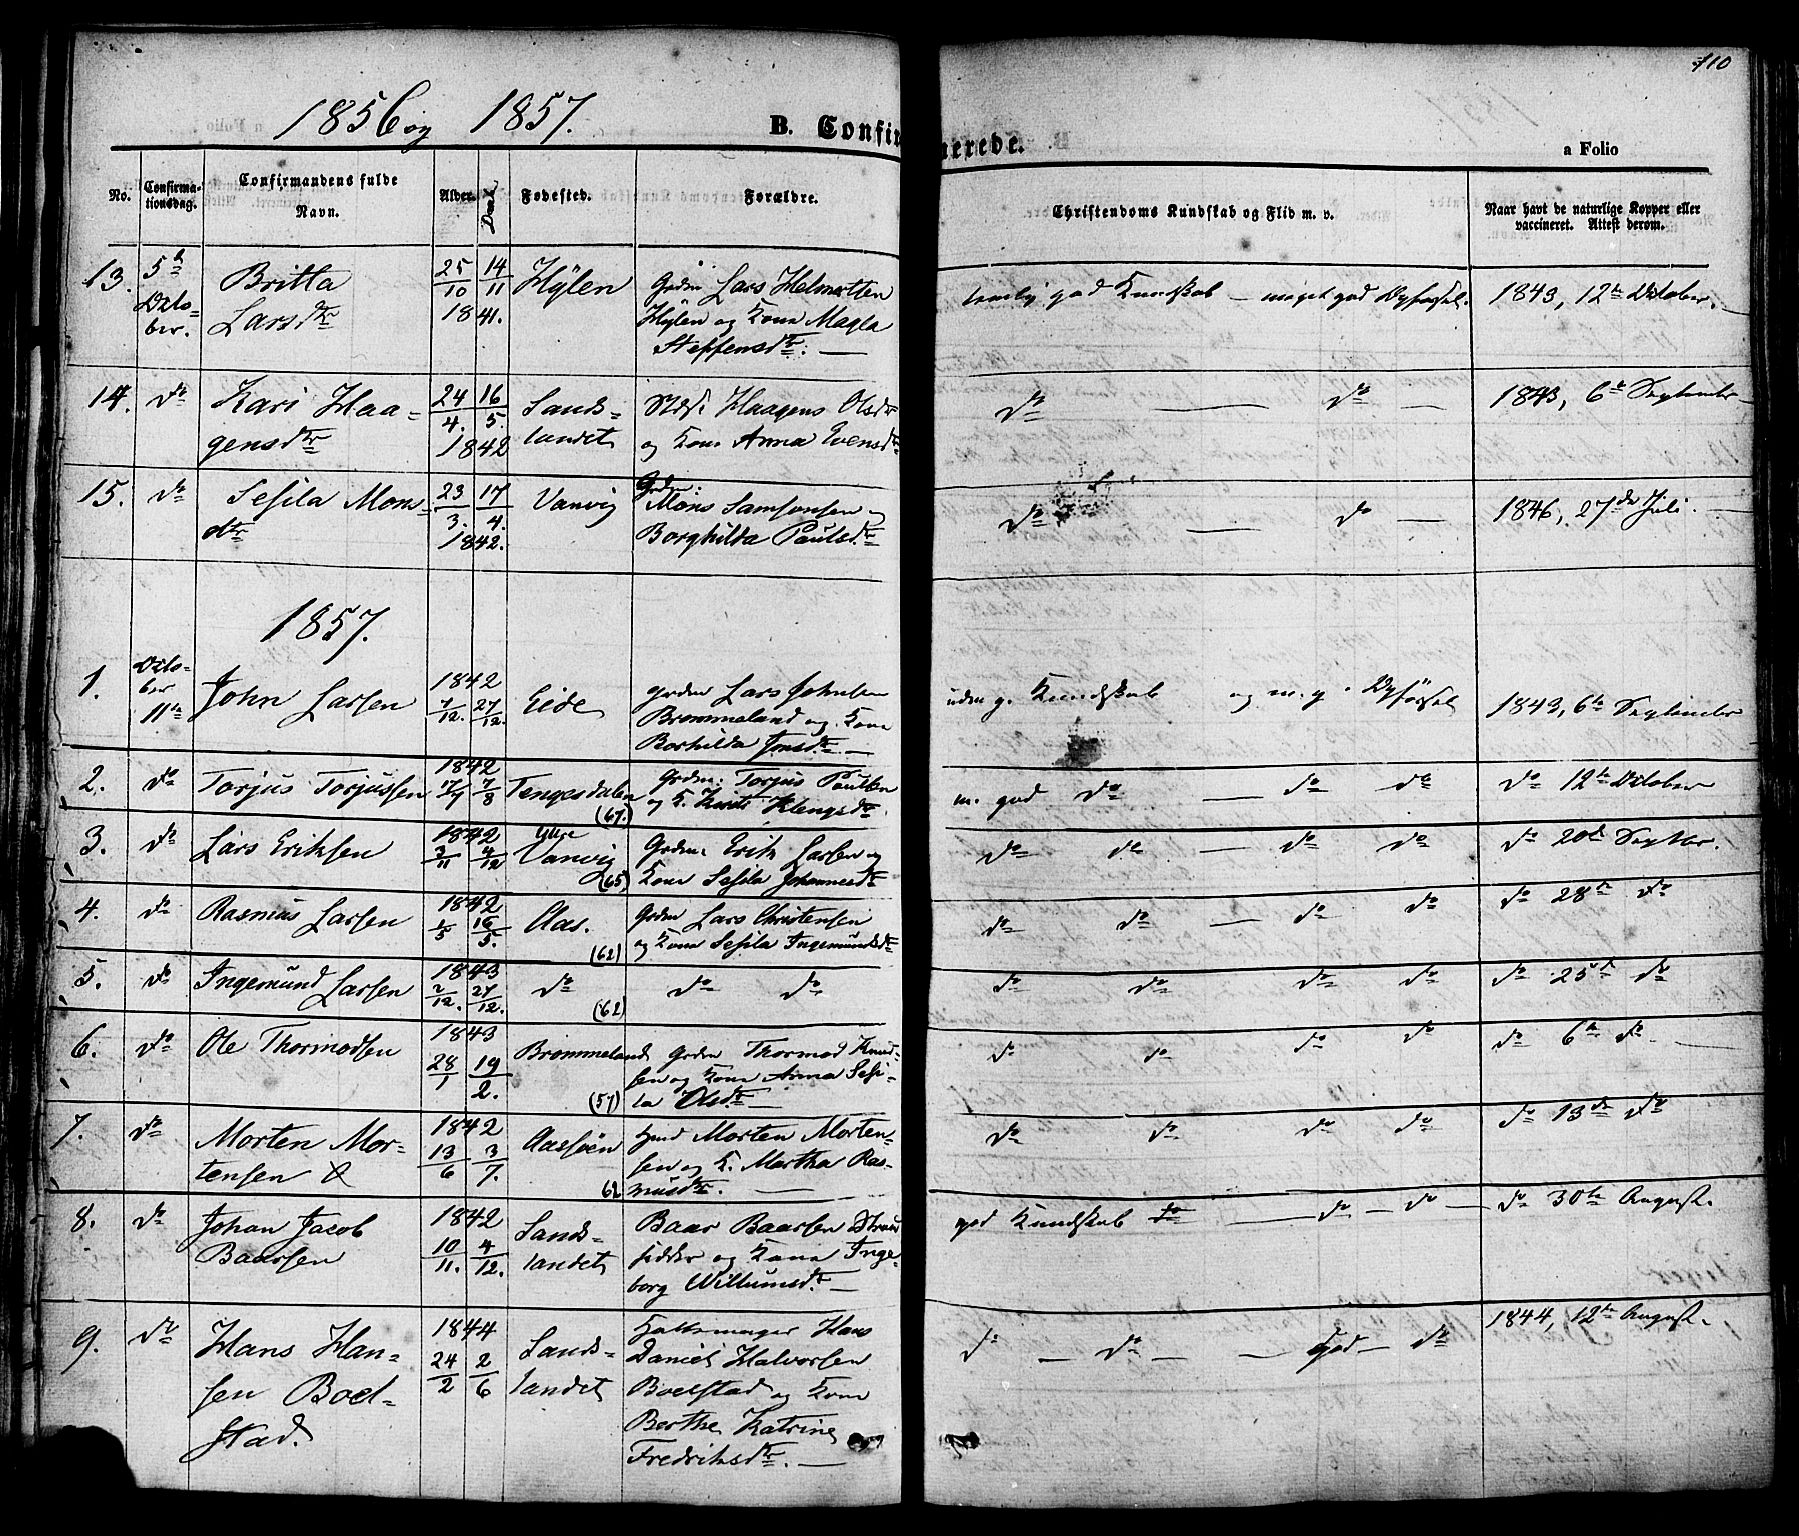 110
1856 og 1857.
B. Confirmerede.
a Folio
No.
Confirmationsdag.
Confirmandens fulde Navn.
Alder.
Døbt
Fødested.
Forældre.
Christendoms Kundskab og Flid m. v.
Naar havt de naturlige Kopper eller vaccineret. Attest derom.
13. 5te October. Britta Larsdtr 25/10 14/11 1841. Hylen Grdm Lars Helmertsen Hylen og Kone Magla Steffensdtr. — temlig god Kundskab — meget god Opførsel. 1843, 12te October. —
14. do Kari Haagensdtr 24/4. 16/5. 1842 Sandslandet Haagens Olsdtr og Kone Anna Evensdtr do — do — 1843, 6te September —
15. do Sesila Monsdtr 23/3. 17/4. 1842. Vanvig Grdm: Mons Samsonsen og Borghilda Paulsdtr do — do — 1846, 27de Juli. —
1857.
1. October 11te John Larsen 1842 7/12. 27/12. Eide Grdm Lars Johnsen Brommeland og Kone Borhilda Jonsdtr. — g. Kundskab og m. g. Opførsel 1843, 6te September
2. do Torjus Torjussen 1842 7/8 Tengesdalen (67.) Grdm: Torjus Paulsen og K. Klengsdtr. m. god do — do do do 12te October
3. do Lars Eriksen 1842 3/11 4/12 Ytre Vanvig (65) Grdm: Erik Larsen og Kone Sesila Johannesdtr do do — do do do 20de Septbr.
4. do Rasmus Larsen 1842 1/5 16/5. Aas. (62) Grdm Lars Christensen og Kone Sesila Ingemundsdtr do do — do do do 28de do
5. do Ingemund Larsen 1843 2/12. 27/12. do (62) do do do do do do do 25de do
6. do Ole Thormodsen 1843 28/1 19/2. Brommeland (57) Grdm Thormod Knudsen og Kone Anna Sesila Olsdtr — do do do do do 6te do —
7. do Morten Mortensen 1842 13/6 3/7. Aasføen 62 Hmd Morten Mortensen og K. Martha Rasmusdtr. — do do do do do 13de do
8. do Johan Jacob Baarsen 1842 10/11. 4/12. Sandslandet Baar Baarsen Strandsidder og Kone Ingeborg Willumsdtr. — god Kundskab do — do — do — do 30te August.
9. do Hans Hansen Boelstad. 1844 24/2 2/6 Sandslandet Hans Daniel Halvorsen Boelstad og Kone Berthe Katrine Fredriksdtr. — do — do — God — do 1844, 12te August.